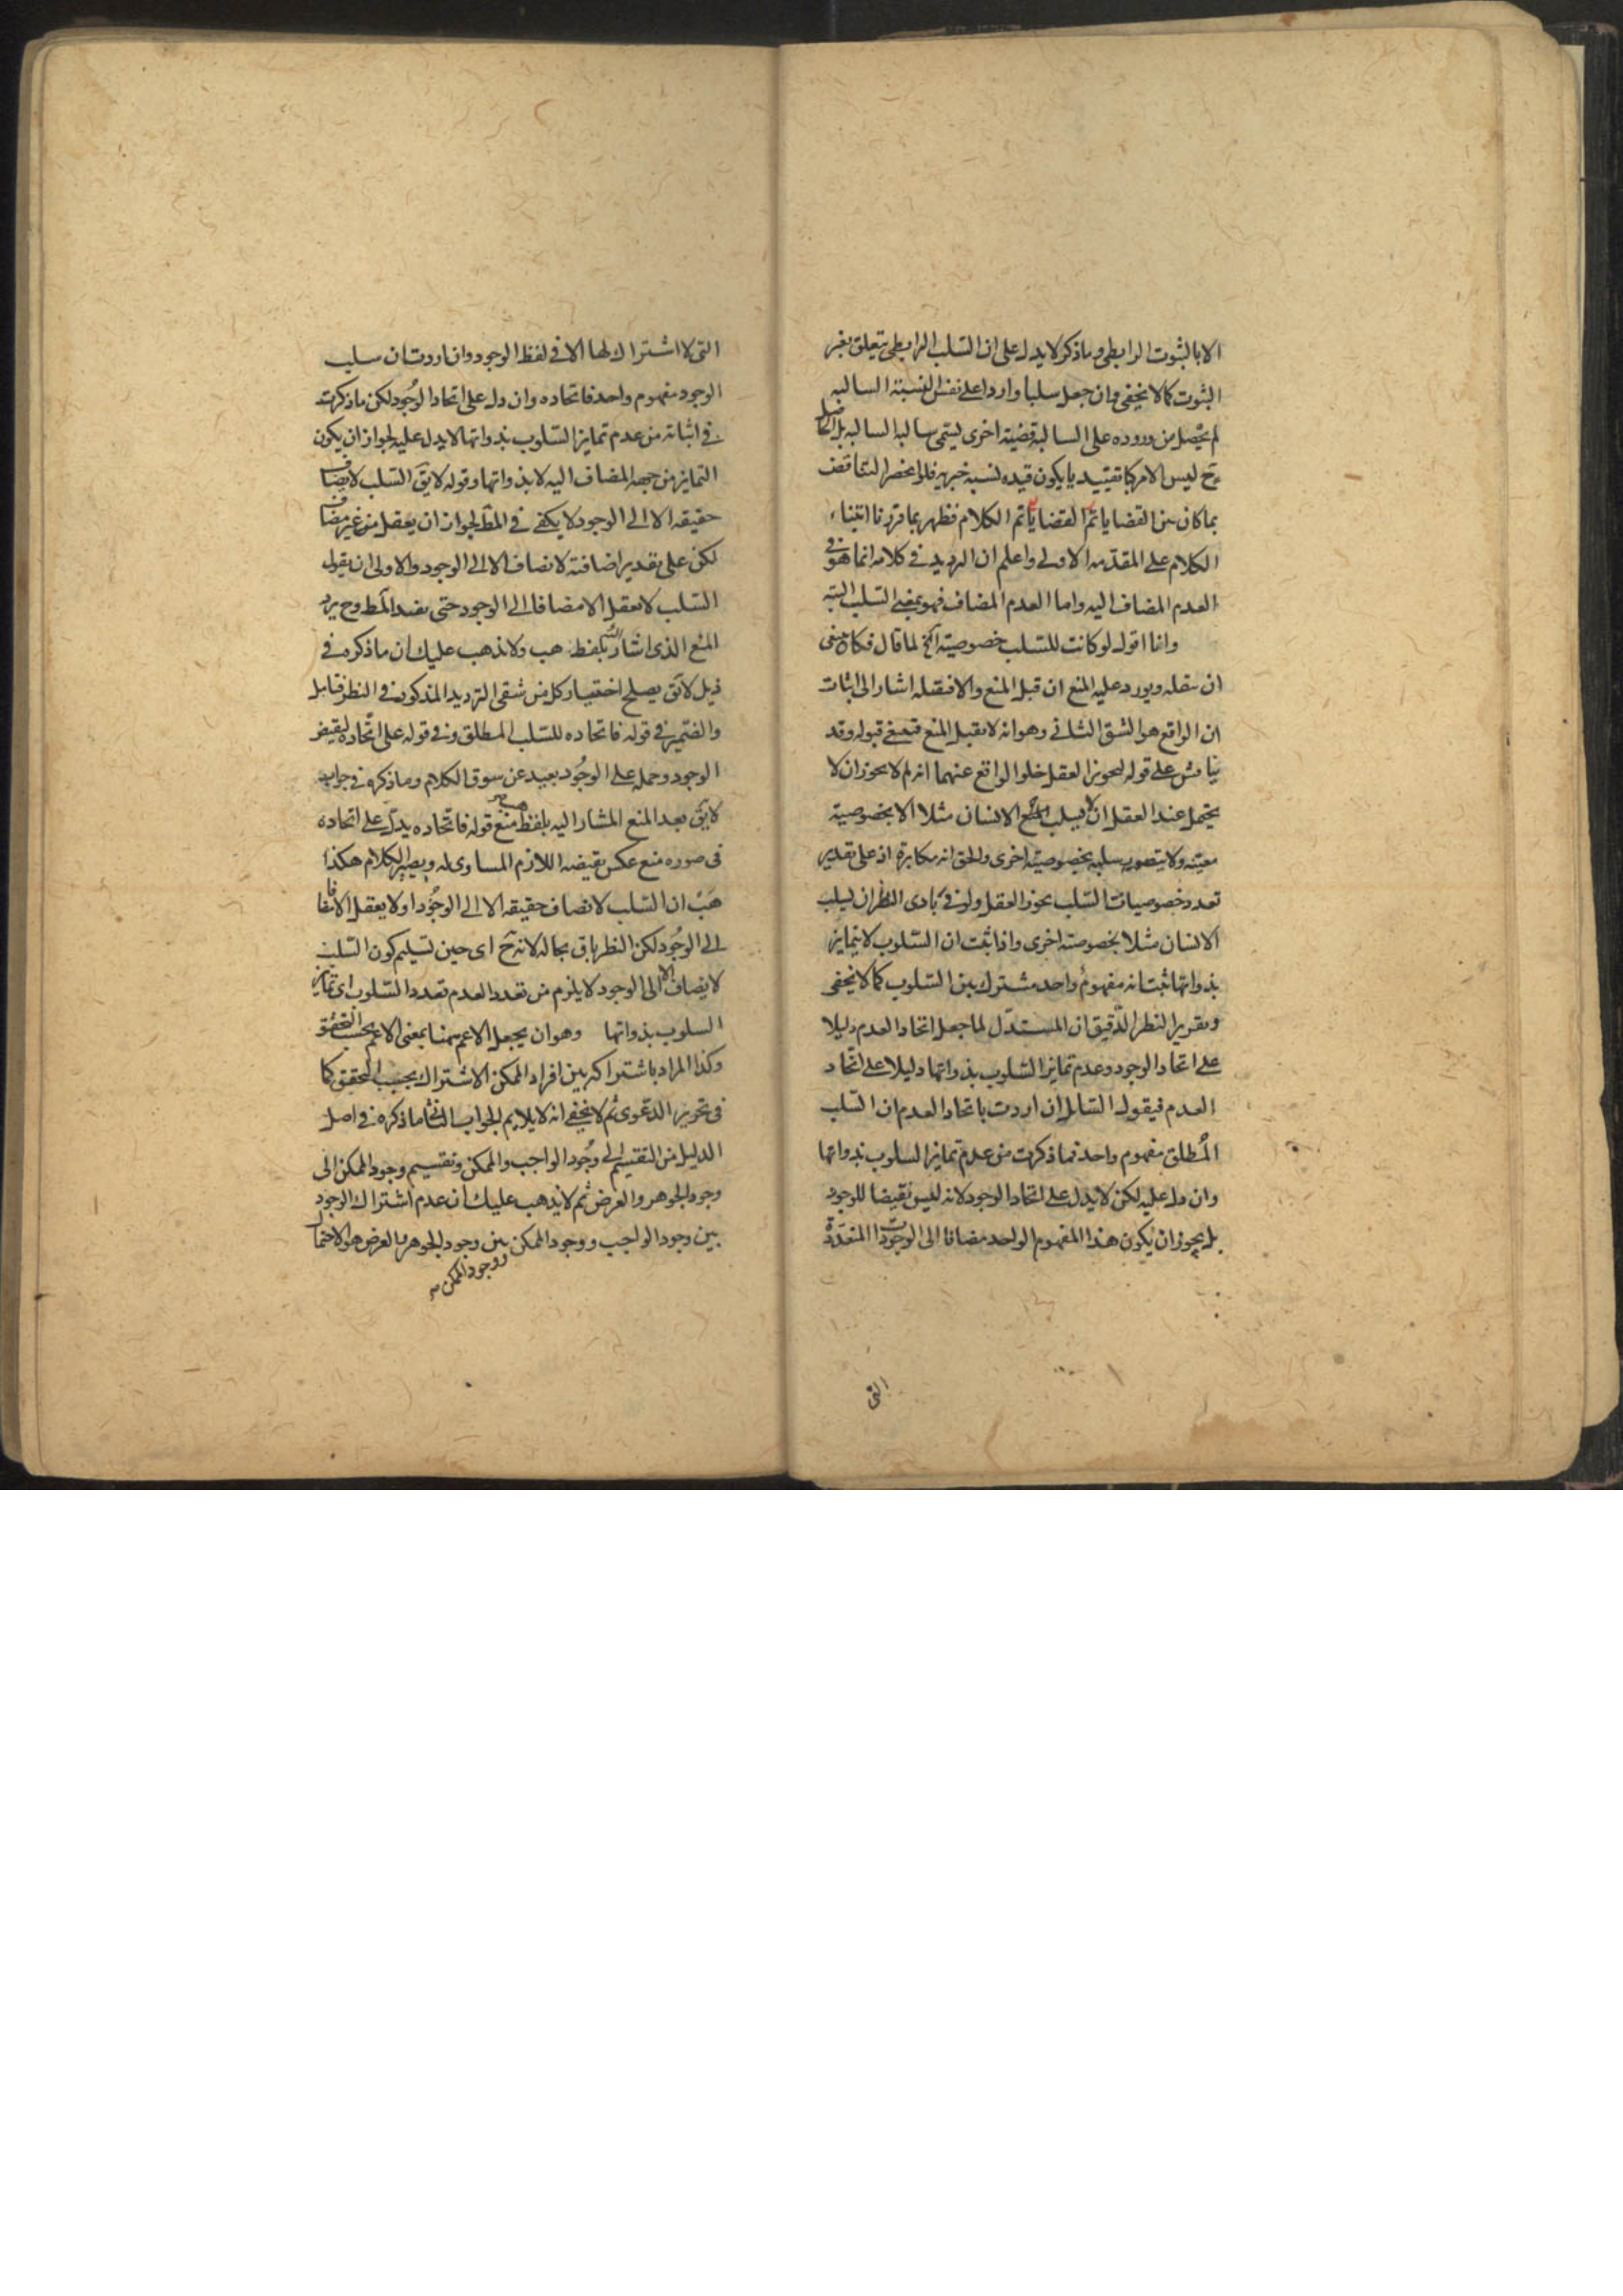 الا بالثبوت الرابطى وما ذكر لا يدل على ان السلب الرابطى يتعلق بغير
الثبوت كما لا يخفى وان جعل سلبا واردا على نفس النسبة السالبه
لم يحصل من وروده على السالبة قضية اخرى يسمى سالبة السالبه بل الحاصل
ح ليس الامر كما تقييديا يكون قيده نسبة خبرية فلو انحصر التناقض
بما كان بين القضايا تم الكلام فظهر بما قررنا ابتناء
الكلام على المقدمه الاولى واعلم ان الترديد فى كلامه انما هو فى
العدم المضاف اليه واما العدم المضاف فهو بمعنى السلب البتة
وانا اقول لو كانت للسلب خصوصية آلخ لما قال فكانه
ان يقبله ويورد عليه المنع ان قبل المنع والا فيقبله اشار الى اثبات
ان الواقع هو الشق الثانى وهو انه لا يقبل المنع فينبغى قبوله وقد
يناقش على قوله لتجويز العقل خلو الواقع عنهما انه لم لا يجوز ان لا
يحتمل عند العقل ان لا يسلب الانسان مثلا الا بخصوصية
معينه ولا يتصور سلبه بخصوصية اخرى والحق انه مكابرة اذ على تقدير
تعدد خصوصيات السلب يجوز العقل ولو فى بادى النظر ان يسلب
الانسان مثلا بخصوصية اخرى واذا ثبت ان السلوب لا يتمايز
بذواتها ثبت انه مفهوم واحد مشترك بين السلوب كما لا يخفى
وتقرير النظر الدقيق ان المستدل لما جعل اتحاد العدم دليلا
على اتحاد الوجود وعدم تمايز السلوب بذواتها دليلا على اتحاد
العدم فيقول السائل ان اردت باتحاد العدم ان السلب
المطلق مفهوم واحد فما ذكرت من عدم تمايز السلوب بذواتها
وان دل عليه لكن لا يدل على اتحاد الوجود لانه ليس نقيضا للوجود
بل يجوز ان يكون هذا المفهوم الواحد مضافا الى الوجودات المتعددة
التى
التى لا اشتراك لها الا فى لفظ الوجود وان اردت ان سلب
الوجود مفهوم واحد فاتحاده وان دل على اتحاد الوجود لكن ما ذكرت
فى اثباته من عدم تمايز السلوب بذواتها لا يدل عليه لجواز ان يكون
التمايز من جهه المضاف اليه لا بذواتها وقوله لا يق السلب لا يضاف
حقيقه الا الى الوجود لا يكفى فى المط لجواز ان يعقل من غير مضاف
لكن على تقدير اضافته لا يضاف الا الى الوجود والاولى ان يقول
السلب لا يعقل الا مضافا الى الوجود حتى يفيد المط وح يرد
المنع الذى اشار اليه بلفظ هب ولا يذهب عليك ان ما ذكره فى
ذيل لا يق يصلح اختيار كل من شقى الترديد المذكورين فى النظر فتامل
والضمير فى قوله فاتحاده للسلب المطلق وفى قوله على اتحاده لنقيض
الوجود وحمله على الوجود بعيد عن سوق الكلام وما ذكره فى جواب
لا يق بعد المنع المشار اليه بلفظ هب منع قوله فاتحاده يدل على اتحاده
فى صوره منع عكس نقيضه اللازم المساوى له ويصير الكلام هكذا
هب ان السلب لا يضاف حقيقه الا الى الوجود او لا يعقل الا مضافا
الى الوجود لكن النظر باق بحاله لانه ح اى حين تسليم كون السلب
لا يضاف الا الى الوجود لا يلزم من تعدد العدم تعدد السلوب اى تمايز
السلوب بذواتها وهو ان يجعل الاعم ههنا بمعنى الاعم بحسب التحقق
وكذا المراد باشتراكه بين افراد الممكن الاشتراك بحسب التحقق كما
فى تحرير الدعوى ثم لا يخفى انه لا يلايم الجواب الثانى ما ذكره فى اصل
الدليل من التقسيم الى وجود الواجب والممكن وتقسيم وجود الممكن الى
وجود الجوهر والعرض ثم لا يذهب عليك ان عدم اشتراك الوجود
بين وجود الواجب ووجود الممكن بين وجود الجوهر والعرض هو الاحتمال
ووجود الممكن صح